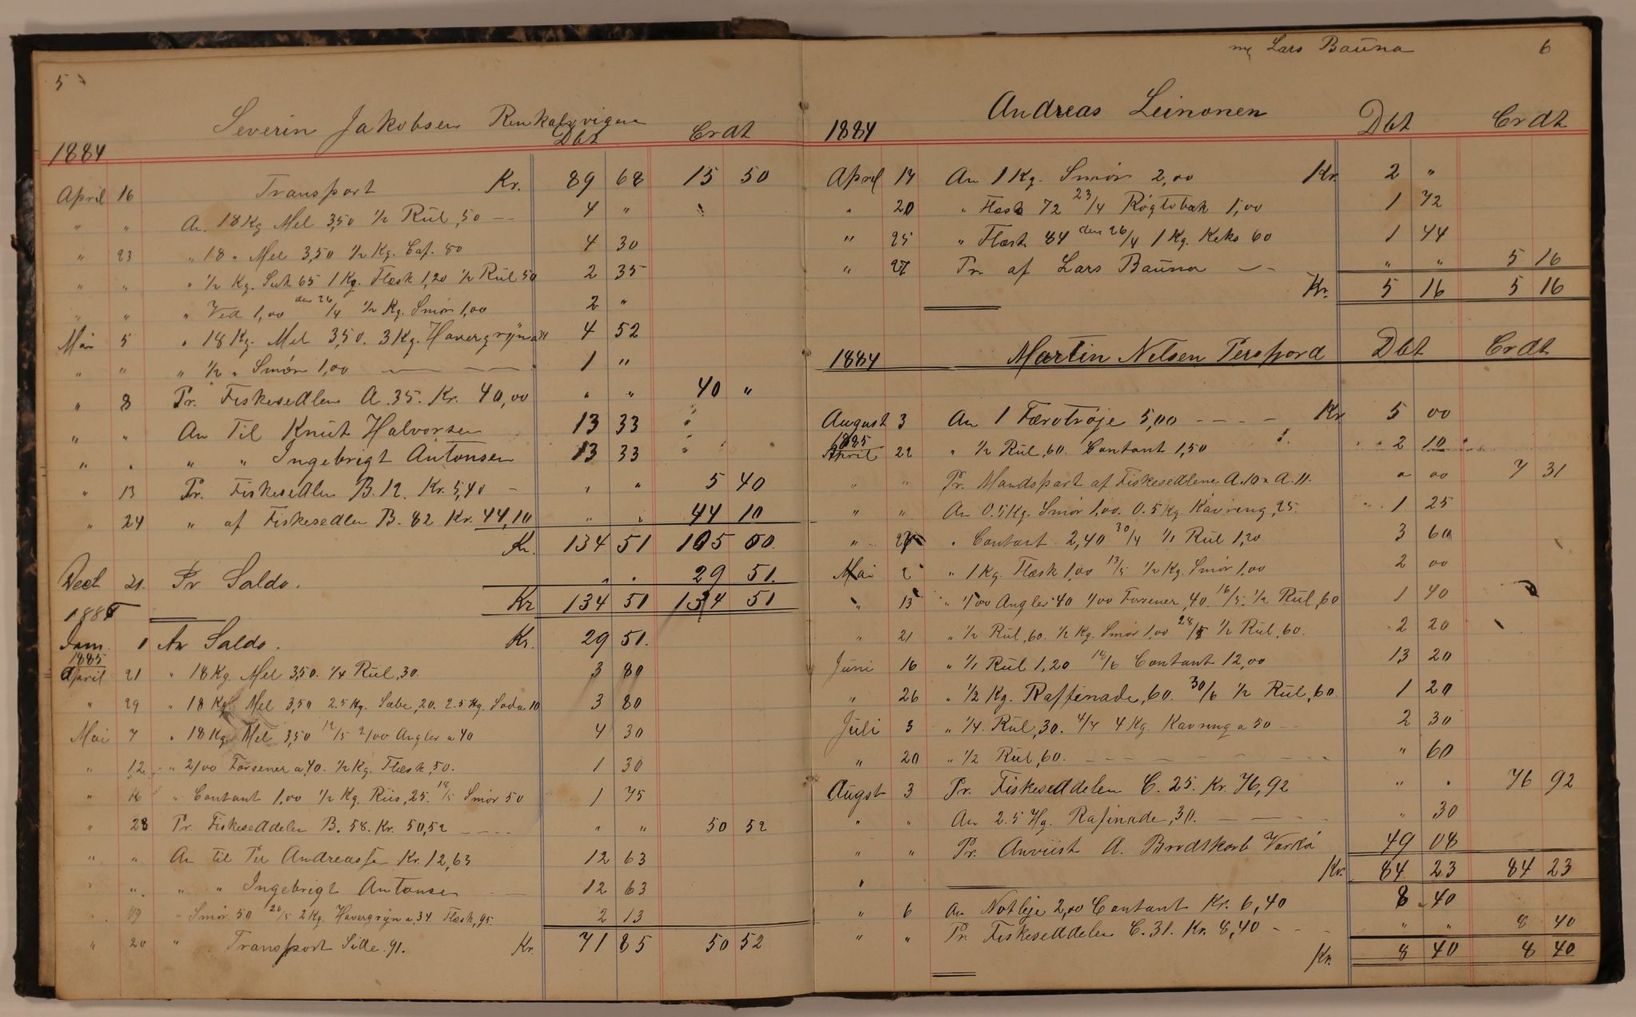 5
Severin Jakobsen
Dbt Crdt
1884
April 16 Transport Kr. 89 68 15 50
" " An 18 Kg Mel 3,50 1/2 Rul ,50 4 "
" 23 " 18 " Mel 3,50 1/2 Kg. Caf. 80 4 30
" " " 1/2 Kg. Suk 65 1 Kg. Flæsk 1,20 1/2 Rul 50 2 35
" " " Ved 1,00 den 26/4 1/2 Kg. Smör 1,00 2 "
Mai 5 " 18 Kg. Mel 3,50. 3 Kg. Havergryn a 34 4 52
" " " 1/2 " Smör 1,00 1 "
" 8 Pr. Fiskesedlen A. 35. Kr. 40,00 " " 40 "
" " An Til Knut Halvorsen 13 33
" " " " Ingebrigt Antonsen 13 33
" 13 Pr. Fiskesedlen B. 12. Kr. 5,40 " " 5 40
" 24 " af Fiskesedlen B. 82 Kr. 44,10 " " 44 10
Kr. 134 51 105 00
Dect 21. Pr Saldo. " " 29 51.
Kr 134 51 134 51
1885
Jan. 1 An Saldo. Kr. 29 51.
1885
April 21 " 18 Kg Mel 3,50. 1/4 Rul ,30. 3 80
" 29 " 18 Kg. Mel 3,50 2.5 Hg. Sæbe ,20. 2.5 Hg. Soda 10 3 80
Mai 7 " 18 Kg. Mel 3,50 12/5 2/00 Angler a 40 4 30
" 12 " 2/00 Forsener a ,40. 1/2 Kg. Flæsk ,50. 1 30
" 16 " Contant 1,00 1/2 Kg. Riis ,25. Smör 50 1 75
" 28 Pr. Fiskeseddelen B. 58. Kr. 50,52 " " 50 52
" " An til Per Andreassen Kr. 12,63 12 63
" " " " Ingebrigt Antonsen 12 63
" 19 " Smör 50 20/5 2 Kg. Havergryn a 34. Flæsk ,95. 2 13
" 20 " Transport Side 91. Kr. 71 85 50 52
Lars Bauna 6
Andreas Leinonen
1884 Dbt Crdt
April 17 An 1 Kg. Smör 2,00 Kr. 2 "
" 20 " Flæsk 72 23/4 Røgtobak 1,00 1 72
" 25 " Flæsk 84 den 26/4 1 Kg. Keks 60 1 44
" 27 Pr. af Lars Bauna " " 5 16
Kr. 5 16 5 16
1884 Martin Nilsen Persfjord Dbt Crdt
August 3 An 1 Færotrøje 5,00 Kr 5 00
1885
April 22 " 1/2 Rul ,60. Contant 1,50 2 10
" " Pr. Mandspart af Fiskesedlene A. 10 " A. 11. " 00 7 31
" " An 0.5 Kg. Smör 1,00. 0.5 Kg Kavring ,25. 1 25
" " Contant 2,40 30/4 1/1 Rul 1,20 3 60
Mai 2 " 1 Kg. Flæsk 1,00 13/5 1/2 Kg. Smör 1,00 2 00
" 13 " 1/00 Angler 40 1/00 Forsener ,40. 16/5. 1/2 Rul ,60 1 40
" 21 " 1/2 Rul ,60. 1/2 Kg. Smör 1,00 28/5 1/2 Rul ,60. 2 20
Juni 16 " 1/1 Rul 1,20 Contant 12,00 13 20
" 26 " 1/2 Kg. Raffinade ,60. 30/6 1/2 Rul ,60 1 20
Juli 3 " 1/4 Rul ,30. 4/7 4 Kg. Kavring a 50 2 30
" 20 " 1/2 Rul ,60. " 60
August 3 Pr. Fiskeseddelen C. 25. Kr. 76,92 " " 76 92
" " An 2.5 Hg. Rafinade ,30. " 30
" " Pr. Anviist A. Brodtkorb Vardö 49 08
Kr. 84 23 84 23
" 6 An Notleje 2,00 Contant Kr. 6,40 8 40
" " Pr. Fiskeseddelen C. 31. Kr. 8,40 " " 8 40
Kr. 8 40 8 40